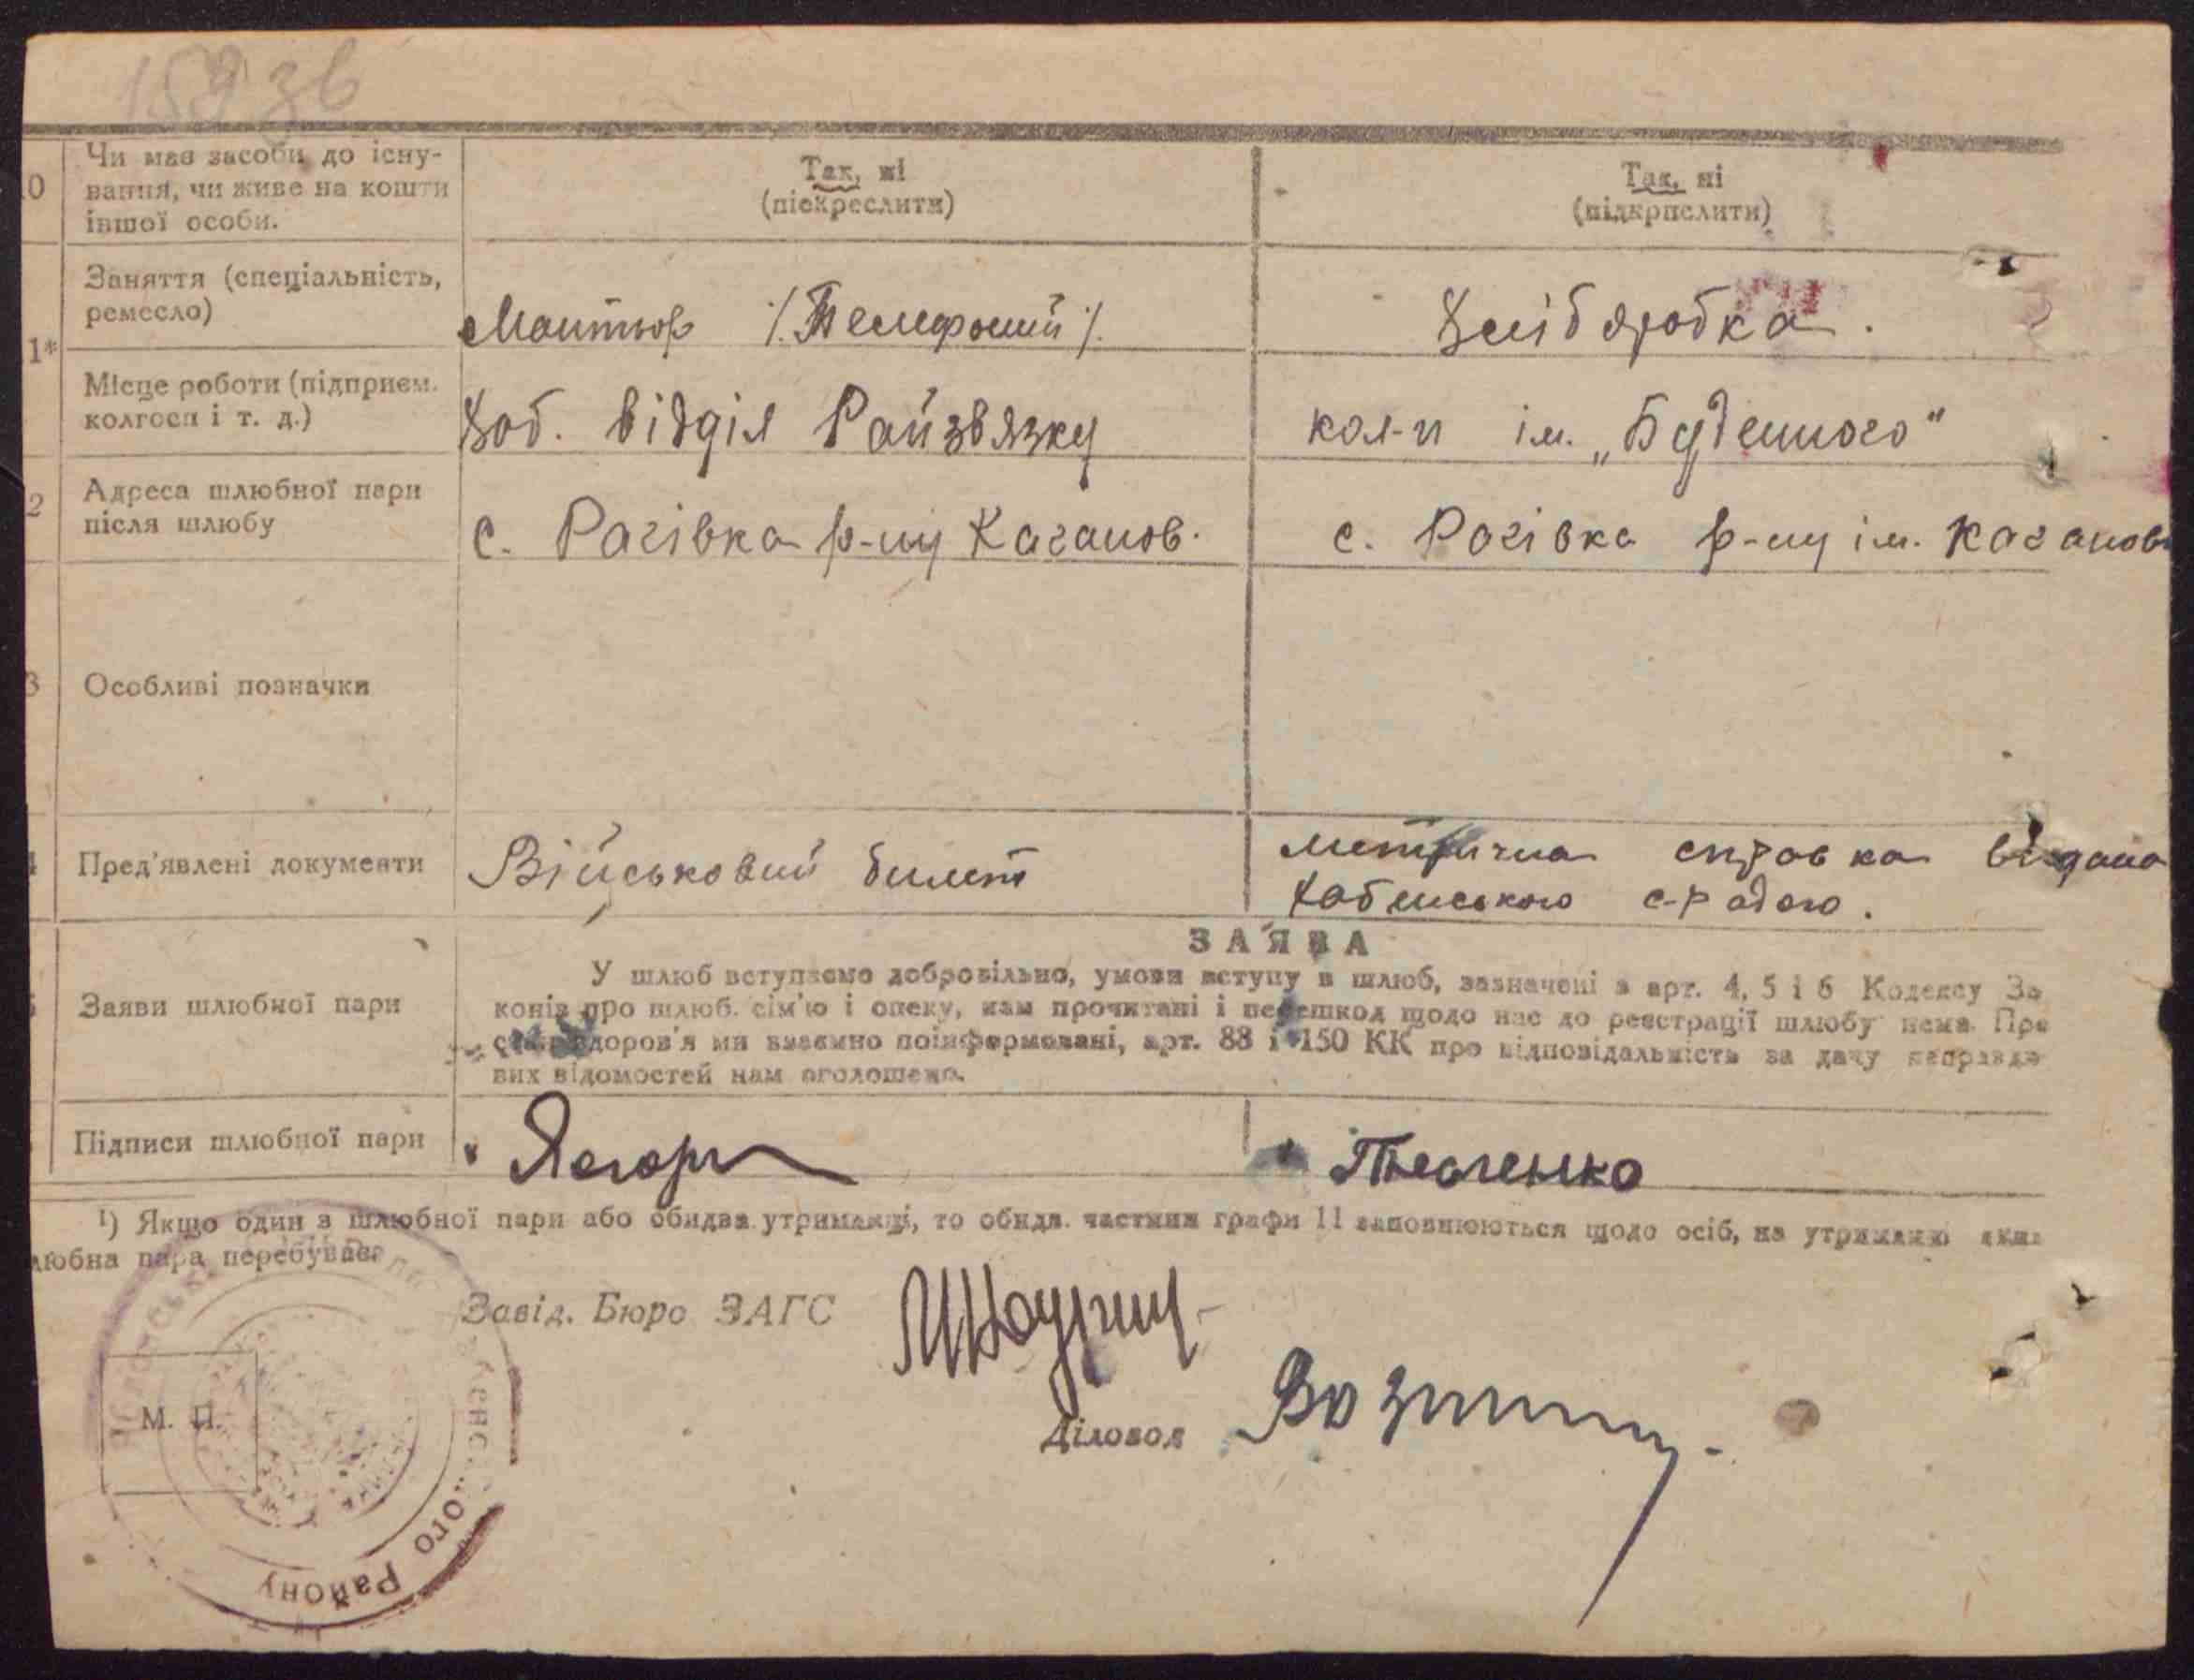 159 зв
0 Чи має засоби до існу-
вання, чи живе на кошти
іншої особи.
Так, ні
(піскреслити)
Так, ні
(підкрислити)
Заняття (спеціальність,
ремесло)
Монтьор /.Телефоний/.
Хліб оробка.
1*
Місце роботи (підприєм.
колгосп і т. д.)
Хаб. відділ Райзвязку
кол-п ім. „Буденного"
2 Адреса шлюбної пари
після шлюбу
с. Рагівка р-ну Каганов.
с. Рагівка р-ну ім. Каганов
3 Особливі позначки
4 Пред'явлені документи
Військовий билет
метрична справка видана
Хабенського с-радою.
ЗАЯВА
У шлюб вступаємо добровільно, умови вступу в шлюб, зазначені в арт. 4, 5 і 6 Кодексу За
конів про шлюб. сім'ю і опеку, нам прочитані і перешкод щодо нас до реєстрації шлюбу нема. Про
здоров'я ми взаємно поінформовані, арт. 88 і 150 КК про відповідальність за дачу неправди
вих відомостей нам оголошено.
Заяви шлюбної пари
Підписи шлюбної пари
Ткаченко
¹) Якщо один з шлюбної пари або обидва утриманці, то обидв. частини графи 11 заповнюються щодо осіб, на утриманні яких
любна пара перебуває.
Завід. Бюро ЗАГС
Діловод
М. П.
Району